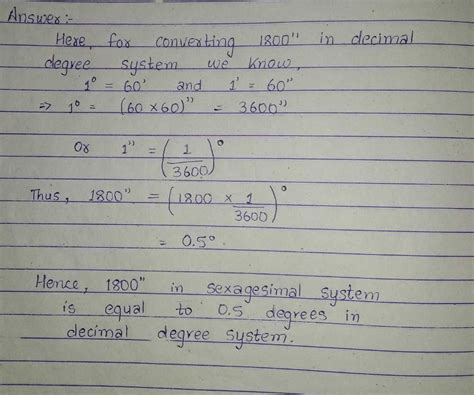 Answer :-
Here, for converting 1800" in decimal
degree system we know,
1° = 60' and 1' = 60"
⇒ 1° = (60 × 60)" = 3600"
Or 1" = (1/3600)°
Thus, 1800" = (1800 × 1/3600)°
= 0.5°.
Hence, 1800" in sexagesimal system
is equal to 0.5 degrees in
decimal degree system.